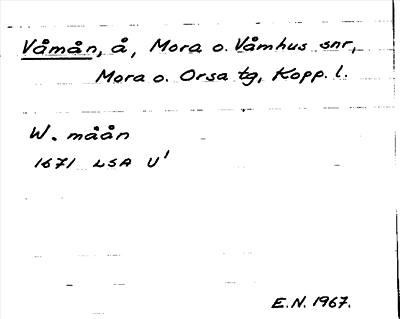 Våmån, å, Mora o. Våmhus snr,
Mora o. Orsa tg, Kopp. l.
W. måån
1671 LSA U¹
E.N. 1967.